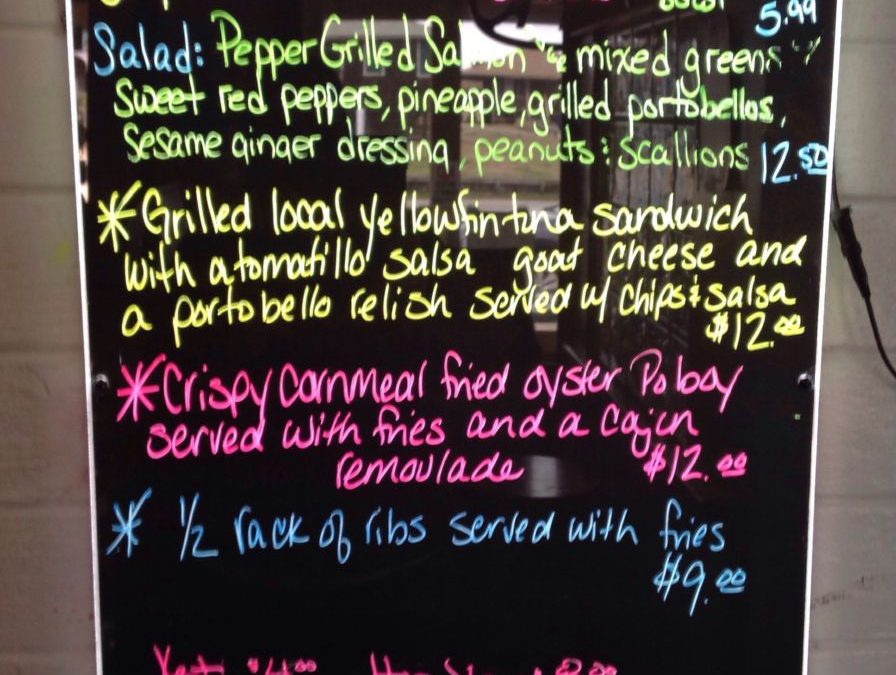 5.99
Salad: Pepper Grilled Salmon w/ mixed greens
Sweet red peppers, pineapple, grilled portobellos,
Sesame ginger dressing, peanuts & scallions 12.50
* Grilled local yellowfin tuna sandwich
with a tomatillo salsa goat cheese and
a portobello relish served w/ chips & salsa
$12.00
* Crispy Cornmeal fried oyster Po boy
served with fries and a Cajun
remoulade $12.00
* 1/2 rack of ribs served with fries
$9.00
$4.00